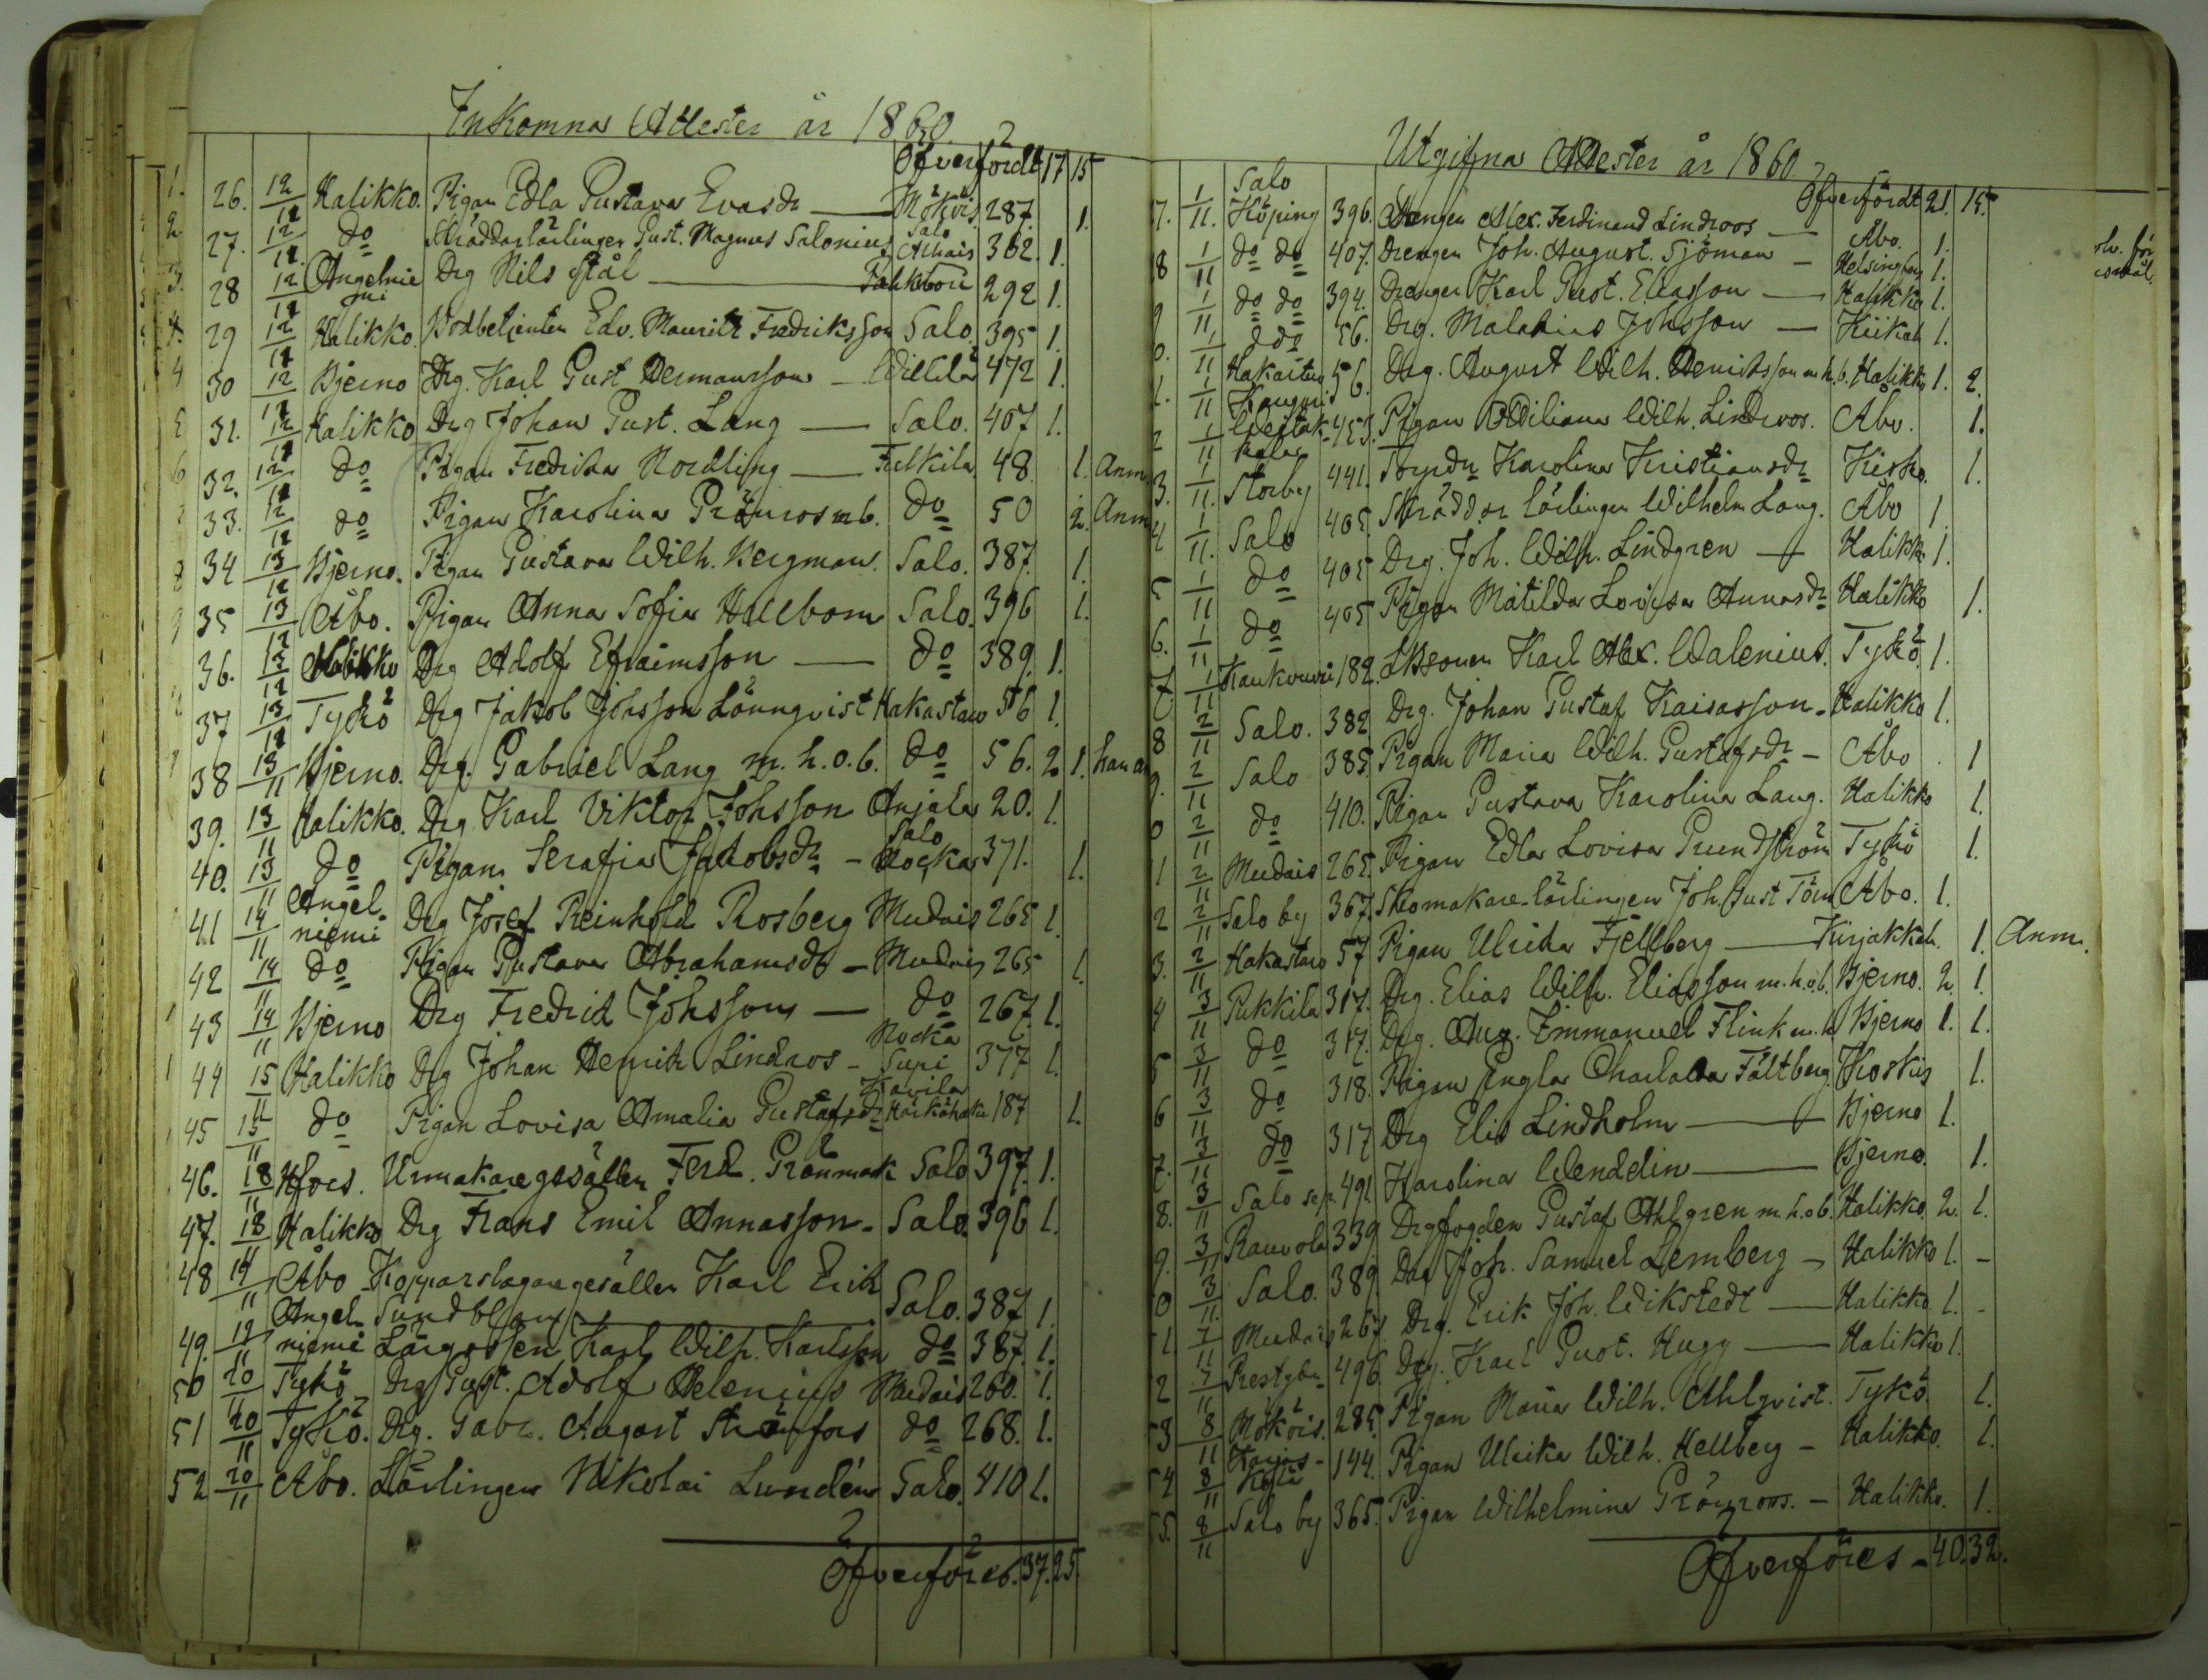 Inkomna Attester år 1860.
Öfverfördt 17 15
26. 12/11 Halikko. Pigan Edla Gustava Evasdr — Mökö is 287. 1.
27. 12/11 do Skräddarlärlingen Gust. Magnus Salonius Salo 362. 1.
28 12/11 Angelnie mi Drg Nils Stål — 292 1.
29 12/11 Halikko. Bodbetjenten Edv. Mauritz Fredriksson Salo. 395 1.
30 12/11 Bjerno Drg. Karl Gust Hermansson — 472 1.
31. 12/11 Halikko Drg Johan Gust. Lang — Salo. 407 1.
32. 12/11 do Pigan Fredrika Nordling — 48. 1. Anm
33. 12/11 do Pigan Karolina Grönroos m b. do 50 2. Anm
34 13/11 Bjerno. Pigan Gustava Wilh. Bergman. Salo. 387. 1.
35 13/11 Åbo. Pigan Anna Sofia Hellbom Salo. 396 1.
36. 13/11 Halikko Drg Adolf Efraimsson — do 389. 1.
37 13/11 Tykö Drg Jakob Johsson Lönnqvist Hakastaro 56 1.
38 13/11 Bjerno. Drg. Gabriel Lang m. h. o. b. do 56. 2. 1.
39. 13/11 Halikko. Drg Karl Viktor Johsson Anjala 20. 1.
40. 13/11 do Pigan Serafia Jakobsdr — Salo Nocka 371. 1.
41 14/11 Angel niemi Drg Josef Reinhold Rosberg Mudais 265 1.
42 14/11 do Pigan Gustava Abrahamsdr — Mudais 265 1.
43 14/11 Bjerno Drg Fredrik Johsson — do 267. 1.
44 15/11 Halikko Drg Johan Henrik Lindroos — Nocka Supi 377 1.
45 15/11 do Pigan Lovisa Amalia Gustafsdr Kavila 187 1.
46. 18/11 Hfors. Urmakaregesällen Ferd. Grönmark Salo 397. 1.
47. 18/11 Halikko Drg Frans Emil Annasson — Salo. 396 1.
48 19/11 Åbo Kopparslagaregesällen Karl Erik
Sundblom — Salo. 387. 1.
49. 19/11 Angel niemi Karl Wilh. Karlsson do 387. 1.
50 20/11 Tykö Drg Gust. Adolf Helenius Mudais 260. 1.
51 20/11 Tykö. Drg. Gabr. August Strömfors do 268. 1.
52 20/11 Åbo. Lärlingen Nikolai Lundén Salo. 410 1.
Öfverföres. 37. 25.
Utgifna Attester år 1860
Öfverfördt 21. 15.
7. 1/11. Salo Köping 396. Drengen Alex. Ferdinand Lindroos — Åbo. 1.
8 1/11 do do 407. Drengen Joh. August. Sjöman — Helsingfors 1.
9 1/11 do do 394. Drengen Karl Gust. Eliasson — Halikko 1.
0. 1/11 56. Drg. Malakias Johsson — Kiikala 1.
1. 1/11 Hakastaro 56. Drg. August Wilh. Henriksson m h. b. Halikko 1. 2.
2 1/11 453. Pigan Wilh. Lindroos. Åbo. 1.
3. 1/11. Storby 441. Torprdr Karolina Kristiansdr Kisko. 1.
4 1/11. Salo 405. Skräddar lärlingen Wilhelm Lang. Åbo 1.
5 1/11 do 405 Drg. Joh. Wilh. Lindgren — Halikko 1.
6. 1/11 do 405 Pigan Matilda Lovisa Annasdr Halikko 1.
7. 1/11 Kaukvuori 182. Karl Alex. Walenius. Tykö 1.
8 2/11 Salo. 382 Drg. Johan Gustaf Kaisasson — Halikko 1.
9. 2/11 Salo 385. Pigan Maria Wilh. Gustafsdr — Åbo 1
0 2/11 do 410. Pigan Gustava Karolina Lang. Halikko 1.
1 2/11 Mudais 265. Pigan Edla Lovisa Grundström Tykö 1.
2 2/11 Salo by 367. Skomakare-lärlingen Joh. Gust Törn Åbo. 1.
3. 2/11 Hakastaro 57 Pigan Ulrika Fjellberg — Kirjakkala 1. Anm.
4 3/11 Pukkila 317. Drg. Elias Wilh. Eliasson m. h. o b. Bjerno. 2. 1.
5 3/11 do 317. Drg. Aug. Immanuel Flink m. h Bjerno 1. 1.
6 3/11 do 318. Pigan Engla Charlotta Fältberg. Koskis 1.
7. 3/11 do 317 Drg Elis Lindholm — Bjerno 1.
8. 3/11 Salo 491 Karolina Wendelin — Bjerno. 1.
9. 3/11 Rauvola 339 Drgfogden Gustaf Ahlgren m. h. o b. Halikko. 2. 1.
0 3/11. Salo. 389. Drg Joh. Samuel Lemberg — Halikko 1. —
1. 7/11 Mudais 267. Drg. Erik Joh. Wikstedt — Halikko. 1. —
2 7/11 Prestgdn 496 Drg. Karl Gust. Hugg — Halikko 1.
53 8/11 Mökö is. 285. Pigan Maria Wilh. Ahlqvist. Tykö. 1.
54 8/11 144. Pigan Ulrika Wilh. Hellberg — Halikko. 1.
55. 8/11 Salo by 365. Pigan Wilhelmina Grönroos. — Halikko. 1.
Öfverföres — 40. 32.